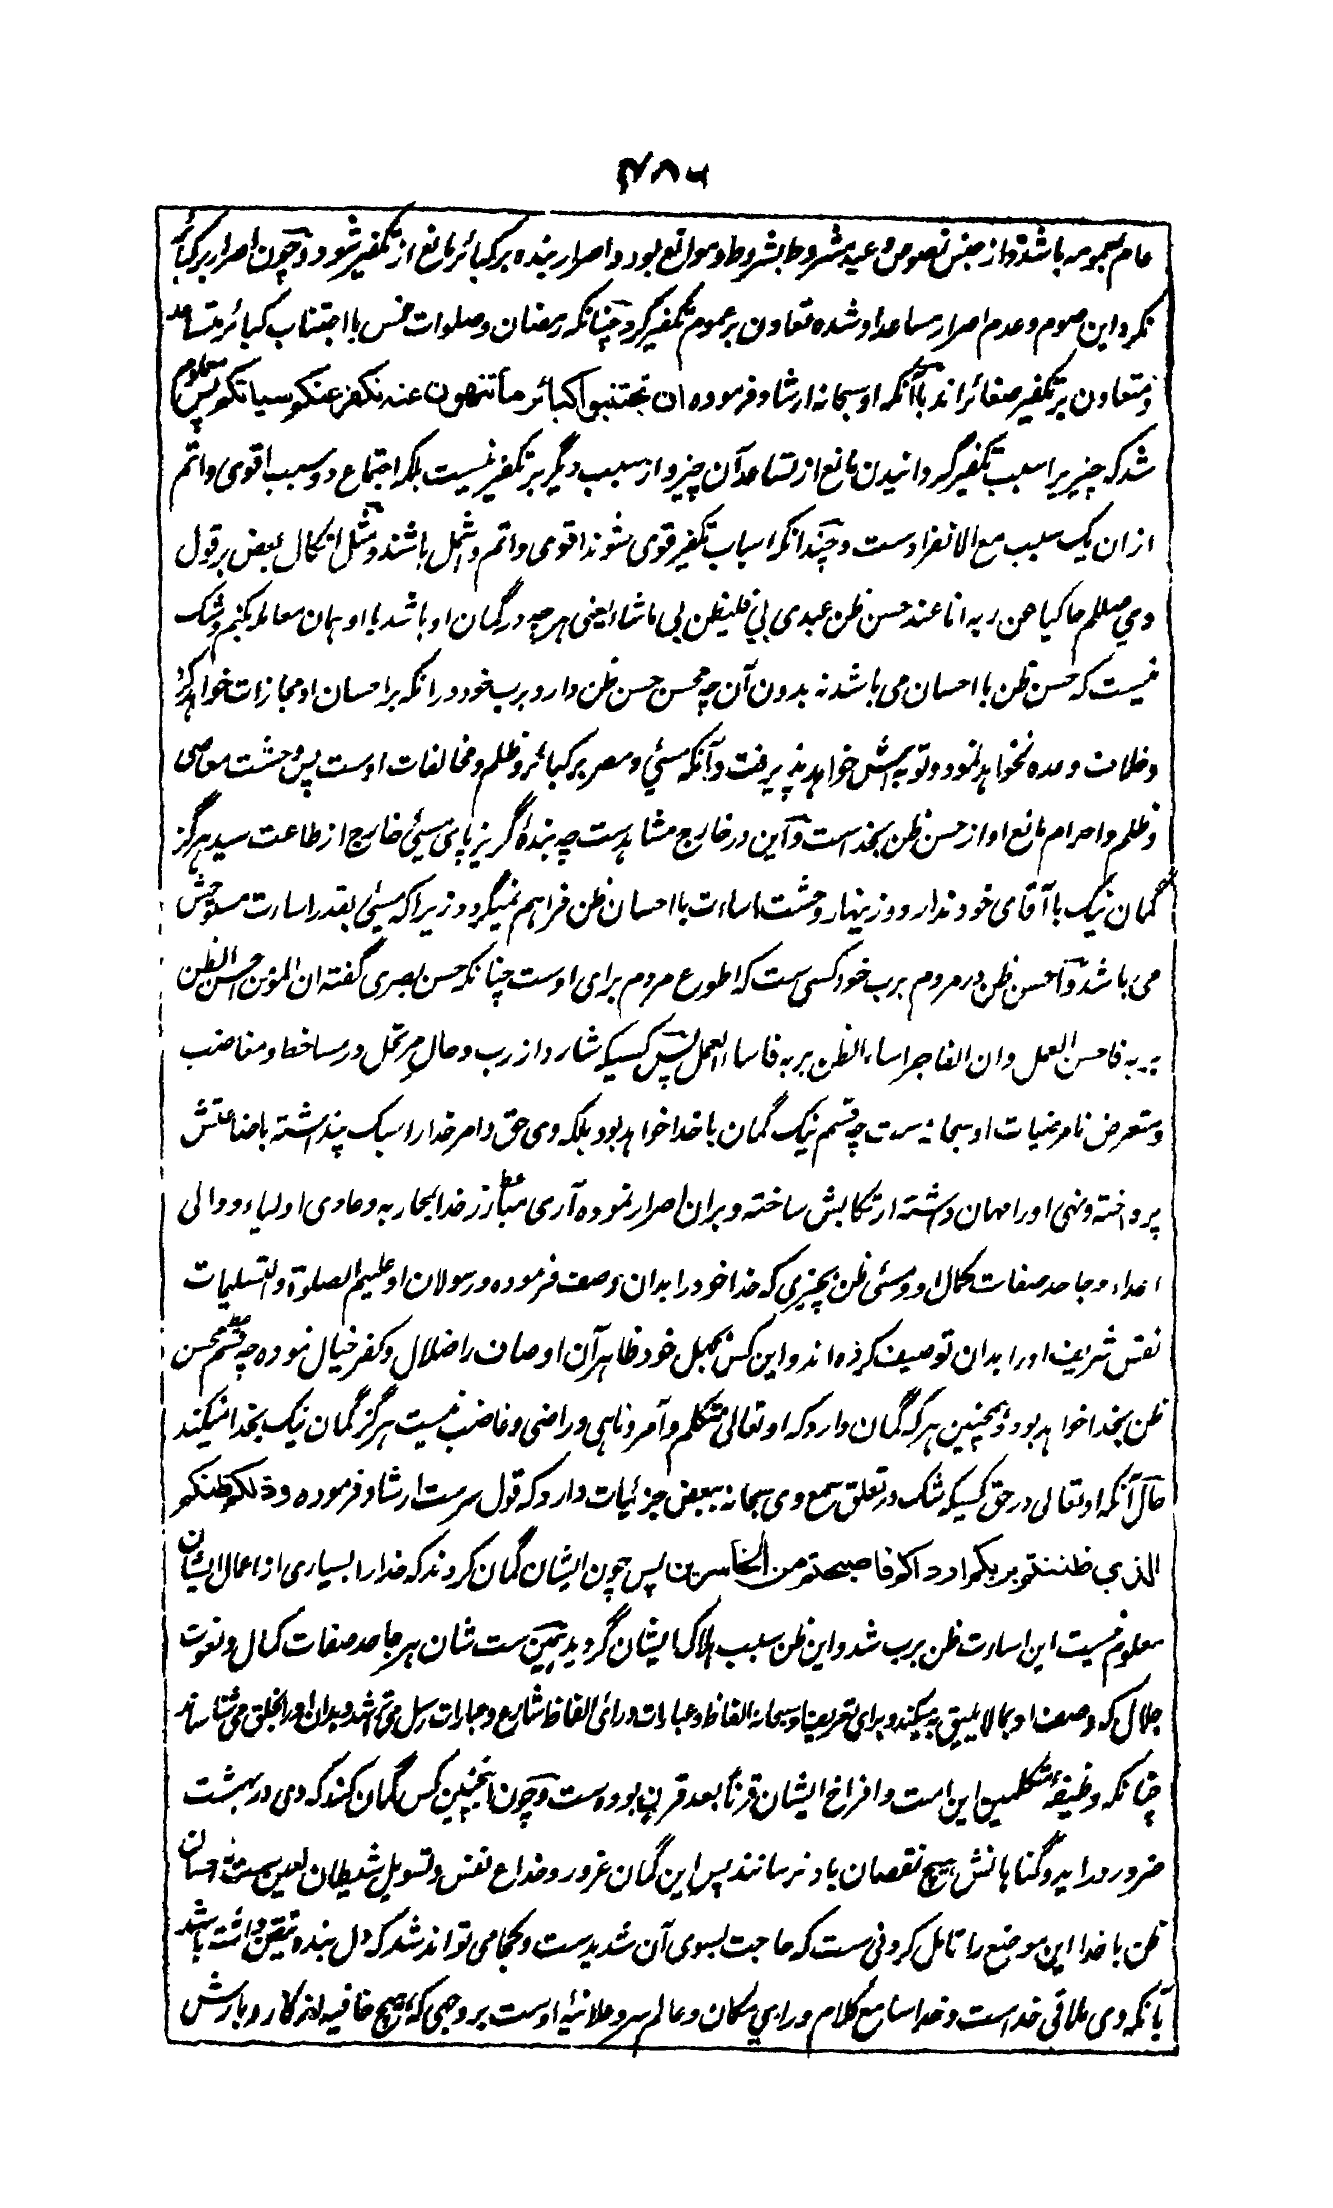 ۴۸۶
عام لعمومه باشد و از جنس نصوص وعید مشروط بشروط و موانع بود و اصرار بنده بر کبائر مانع از تکفیر شود و چون اصرار بر کبائر
نکرد این صوم و عدم اصرار مساعد او شده تعاون بر عموم تکفیر کرد چنانکه رمضان و صلوات خمس با اجتناب کبائر متساعد
و متعاون بر تکفیر صغائر اند با آنکه او سبحانه ارشاد فرموده ان تجتنبوا کبائر ما تنهون عنه نکفر عنکم سیاتکم پس معلوم
شد که چیزیرا سبب تکفیر گردانیدن مانع از تساعد آن چیز و از سبب دیگر بر تکفیر نیست بلکه اجتماع دو سبب اقوی و اتم
از ان یک سبب مع الانفراد ست و چندانکه اسباب تکفیر قوی شوند اقوی و اتم و اشمل باشند و مثل اتکال بعض بر قول
وی صللم حاکیا عن ربه انا عند حسن ظن عبدی بی فلیظن بی ما شاء یعنی هر چه در گمان او باشد با او همان معامله بکنم و شک
نیست که حسن ظن با احسان می باشد نه بدون آن چه محسن حسن ظن دارد برب خود در انکه بر احسان او مجازات خواهد کرد
و خلاف وعده نخواهد نمود و توبه اش خواهد پذیرفت و آنکه مسئی و مصر بر کبائر و ظلم و مخالفات اوست پس وحشت معاصی
و ظلم و احرام مانع او از حسن ظن بخداست و این در خارج مشاهد ست چه بنده گریز پای مسیئ خارج از طاعت سید هرگز
گمان نیک با آقای خود ندارد و زینهار وحشت اساءت با احسان ظن فراهم نمیگردد زیرا که مسئی بقدر اساءت مستوحش
می باشد و احسن ظن در مردم برب خود کسی ست که اطوع مردم برای اوست چنانکه حسن بصری گفته ان المؤمن احسن الظن
بربه فاحسن العمل وان الفاجر اساء الظن بربه فاساء العمل پس کسیکه شارد از رب و حال مرتحل در مساخط و مغاضب
و متعرض نامرضیات او سبحانه ست چه قسم نیک گمان با خدا خواهد بود بلکه وی حق و امر خدا را سبک پنداشته باضاعتش
پرداخته و نهی او را مهان داشته ارتکابش ساخته و بران اصرار نموده آری مبارز خدا بمحاربه و معادی اولیاء و والی
اعداء و جاحد صفات کمال او و مسئی ظن بچیزی که خدا خود را بدان وصف فرموده و رسولان او علیهم الصلوة والتسلیمات
نفس شریف او را بدان توصیف کرده اند و این کس بجهل خود ظاهر آن اوصاف را ضلال و کفر خیال نموده چه قسم محسن
ظن بخدا خواهد بود و همچنین هر که گمان دارد که او تعالی متکلم و آمر و ناهی و راضی و غاضب نیست هرگز گمان نیک بخدا نمیکند
حال آنکه او تعالی در حق کسیکه شک در تعلق سمع وی سبحانه ببعض جزئیات دارد که قول سرست ارشاد فرموده وذلکم ظنکم
الذی ظننتم بربکم ارداکم فاصبحتم من الخاسرین پس چون ایشان گمان کردند که خدا را بسیاری از اعمال ایشان
معلوم نیست این اساءت ظن برب شد و این ظن سبب هلاک ایشان گردید همین ست شان هر جاحد صفات کمال و نعوت
جلال که وصف او بما لا یلیق به میکند و برای تعریف او سبحانه الفاظ و عبارات ورای الفاظ شارع و عبارات رسل می تراشد و بدان او را بخلق می شناساند
چنانکه وظیفه متکلمین این است و افراخ ایشان قرنا بعد قرن بوده ست و چون اینچنین کس گمان کند که وی در بهشت
ضرور در اید و گناهانش هیچ نقصان باو نرسانند پس این گمان غرور و خداع نفس و تسویل شیطان لعین ست نه احسان
ظن با خدا این موضع را تامل کردنی ست که حاجت بسوی آن شدید ست و کجا می تواند شد که دل بنده متیقن داشت باشد
بآنکه وی ملاقی خداست و خدا سامع کلام و رایی مکان و عالم سر و علانیه اوست بر وجهی که هیچ خافیه از کار و بارش